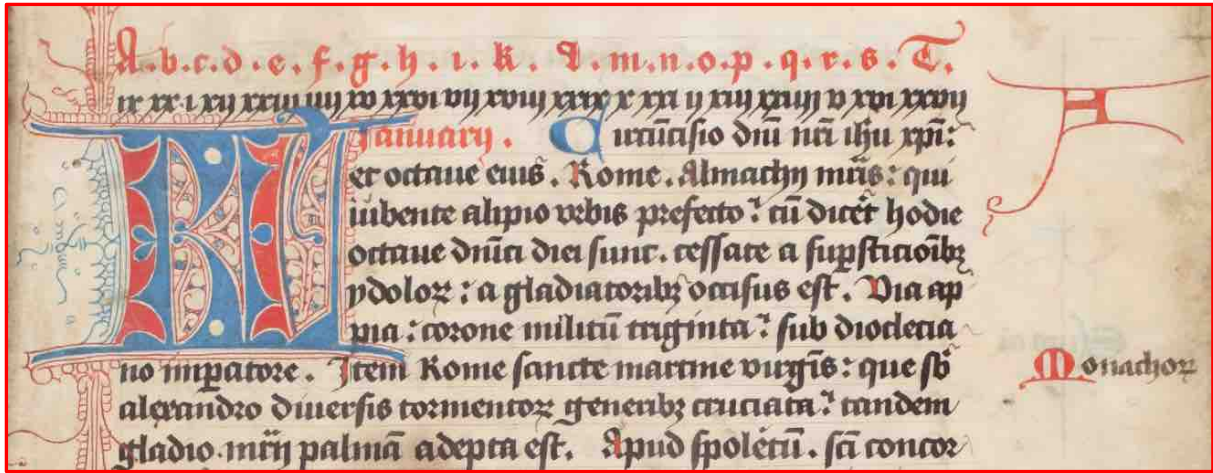 A.b.c.d.e.f.g.h.i.k.l.m.n.o.p.q.r.s.T.
ix xx i xij xxiij iiij xv xxvi vij xviij xxix x xxi ij xiij xxiiij v xvi xxvij
KL Januarij. Circūcisio dn̄i nr̄i ih̄u xp̄i:
A
et octaue eius. Rome. Almachij mr̄is: qui
iubente alipio vrbis prefecto: cū dicēt hodie
octaue dn̄ici diei sunt. cessate a sup̄sticioībꝫ
ydoloꝝ: a gladiatoribꝫ occisus est. Via ap
pia: corone militū triginta: sub dioclecia
no imꝑatore. Item Rome sancte martine virgīs: que sb̄
Monachoꝝ
alexandro diuersis tormentoꝝ generibꝫ cruciata: tandem
gladio mr̄ij palmā adepta est. Apud spoletū. sc̄i concor